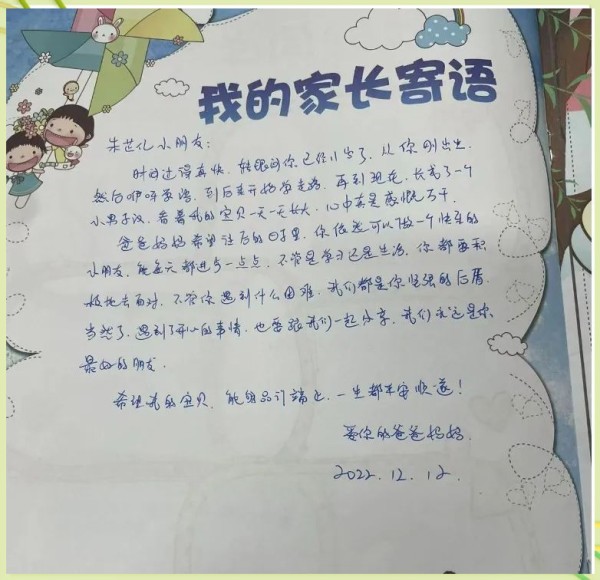 我的家长寄语
朱芷亿小朋友：
时间过得真快，转眼间你已经小学了，从你刚出生，
然后咿呀学语，到后来开始学走路，再到现在，长成了一个
小男子汉，看着我的宝贝一天一天长大，心中真是感慨万千。
爸爸妈妈希望往后的日子里，你依然可以做一个快乐的
小朋友，能每天都进步一点点，不管是学习还是生活，你都要积
极地去面对，不管你遇到什么困难，我们都是你坚强的后盾，
当然了，遇到了开心的事情，也要跟我们一起分享，我们永远是你
最好的朋友。
希望我的宝贝，能够品行端正，一生都平安顺遂！
爱你的爸爸妈妈.
2022.12.12